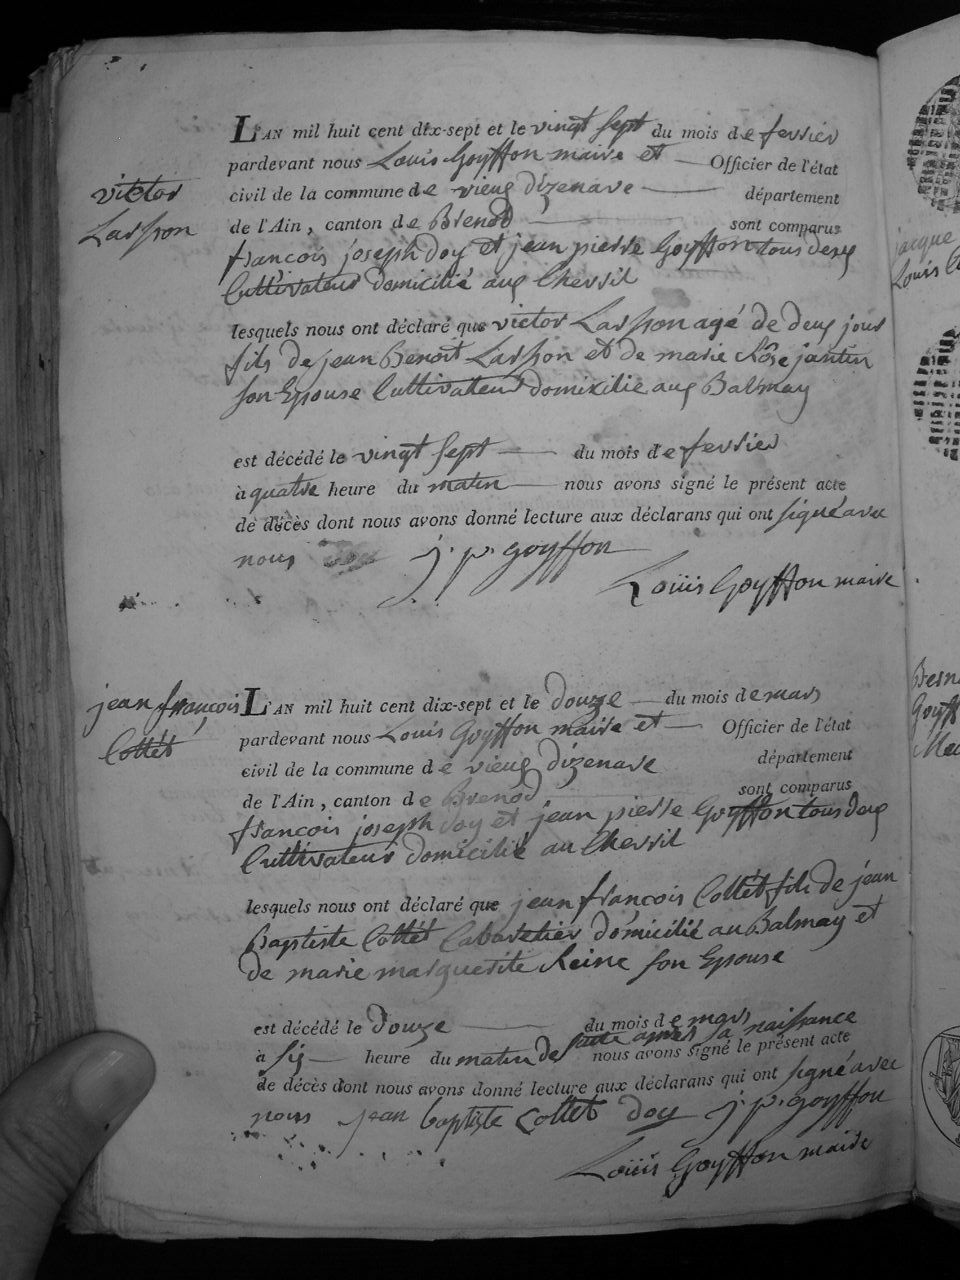 L'AN mil huit cent dix-sept et le vingt sept du mois de fevrier
pardevant nous Louis Goyffon maire et Officier de l'état
civil de la commune de vieux dizenave département
de l'Ain, canton de Brenod sont comparus
victor
Lasson
francois joseph doy et jean pierre Goyffon tous deux
Cultivateur domicilié aux Chevril
lesquels nous ont déclaré que victor Lasson agé de deux jour
fils de jean Benoit Lasson et de marie Rose jantin
son Epouse Cultivateur domixilié aux Balmay
est décédé le vingt sept du mois de fevrier
à quatre heure du matin nous avons signé le présent acte
de décès dont nous avons donné lecture aux déclarans qui ont signé avec
nous j. p. goyffon
Louis Goyffon maire
jean françois
Collét
L'AN mil huit cent dix-sept et le douze du mois de mars
pardevant nous Louis Goyffon maire et Officier de l'état
civil de la commune de vieux dizenave département
de l'Ain, canton de Brenod sont comparus
francois joseph doy et jean pierre Goyffon tous deux
Cultivateur domicilié au Chevril
lesquels nous ont déclaré que jean françois Collét fils de jean
Baptiste Collét Cabaretier domicilié au Balmay et
de marie marguerite Reine son Epouse
est décédé le douze du mois de mars
à six heure du matin de suite après sa naissance nous avons signé le présent acte
de décès dont nous avons donné lecture aux déclarans qui ont signé avec
nous jean baptiste Collet doy j. p. goyffon
Louis Goyffon maire
jacque
Louis
Goyff